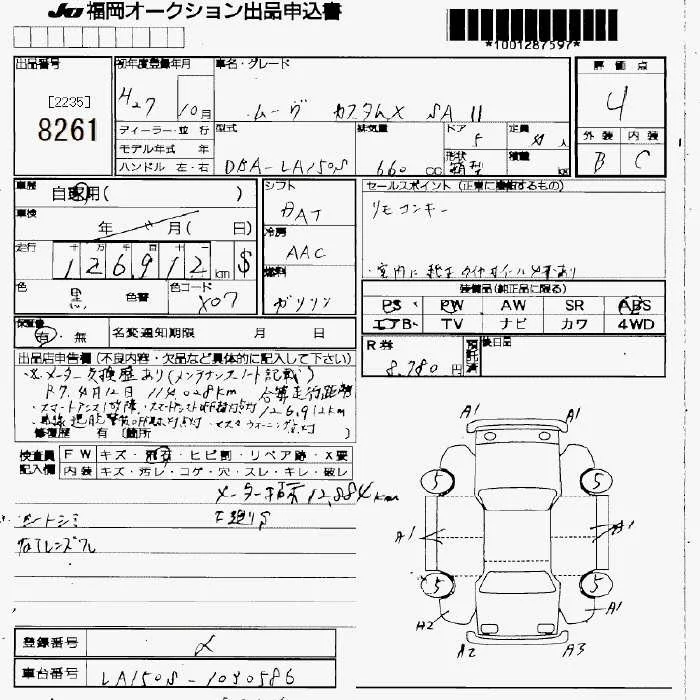 JU 福岡オークション出品申込書
*1001287597*
出品番号
[2235]
8261
初年度登録年月
H27 10月
ディーラー・並行
モデル年式 年
ハンドル 左・右
車名・グレード
ムーヴ カスタムX SA II
型式
DBA-LA150S
排気量
660 CC
ドア
5
定員
4 人
形状
箱型
積載
kg
評価点
4
外装 内装
B C
車歴
自家用( )
車検
年 月( 日)
走行
十 万 千 百 十 一
126,912 km $
色
黒
色替
色コード
X07
シフト
FAT
冷房
AAC
燃料
ガソリン
セールスポイント(正常に機能するもの)
リモコンキー
装備品(純正品に限る)
PS PW AW SR ABS
エアB TV ナビ カワ 4WD
R券
8,780円
預託済
後日品
保証書
有・無
名変通知期限 月 日
出品店申告欄(不良内容・欠品など具体的に記入して下さい)
※メーター交換歴あり(メンテナンスノート記載)
R7.4月12日 114,028km 合算走行距離
・スマートアシスト故障 126,912km
修復歴 有 [箇所
検査員記入欄
FW キズ・飛石・ヒビ割・リペア跡・X要
内装 キズ・汚レ・コゲ・穴・スレ・キレ・破レ
メーター表示 12,884km
シートシミ
下廻りS
A1 A1
5 5
A1 A1
5 5
A2 A1
A2 A3
登録番号
車台番号
LA150S-1030586